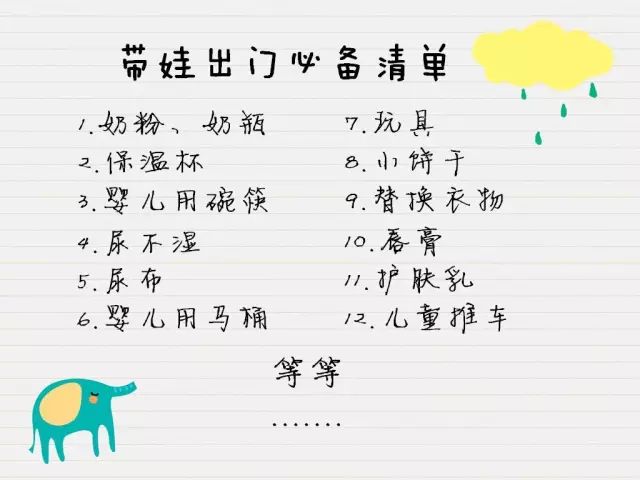 带娃出门必备清单
1.奶粉、奶瓶
2.保温杯
3.婴儿用碗筷
4.尿不湿
5.尿布
6.婴儿用马桶
7.玩具
8.小饼干
9.替换衣物
10.唇膏
11.护肤乳
12.儿童推车
等等
.......